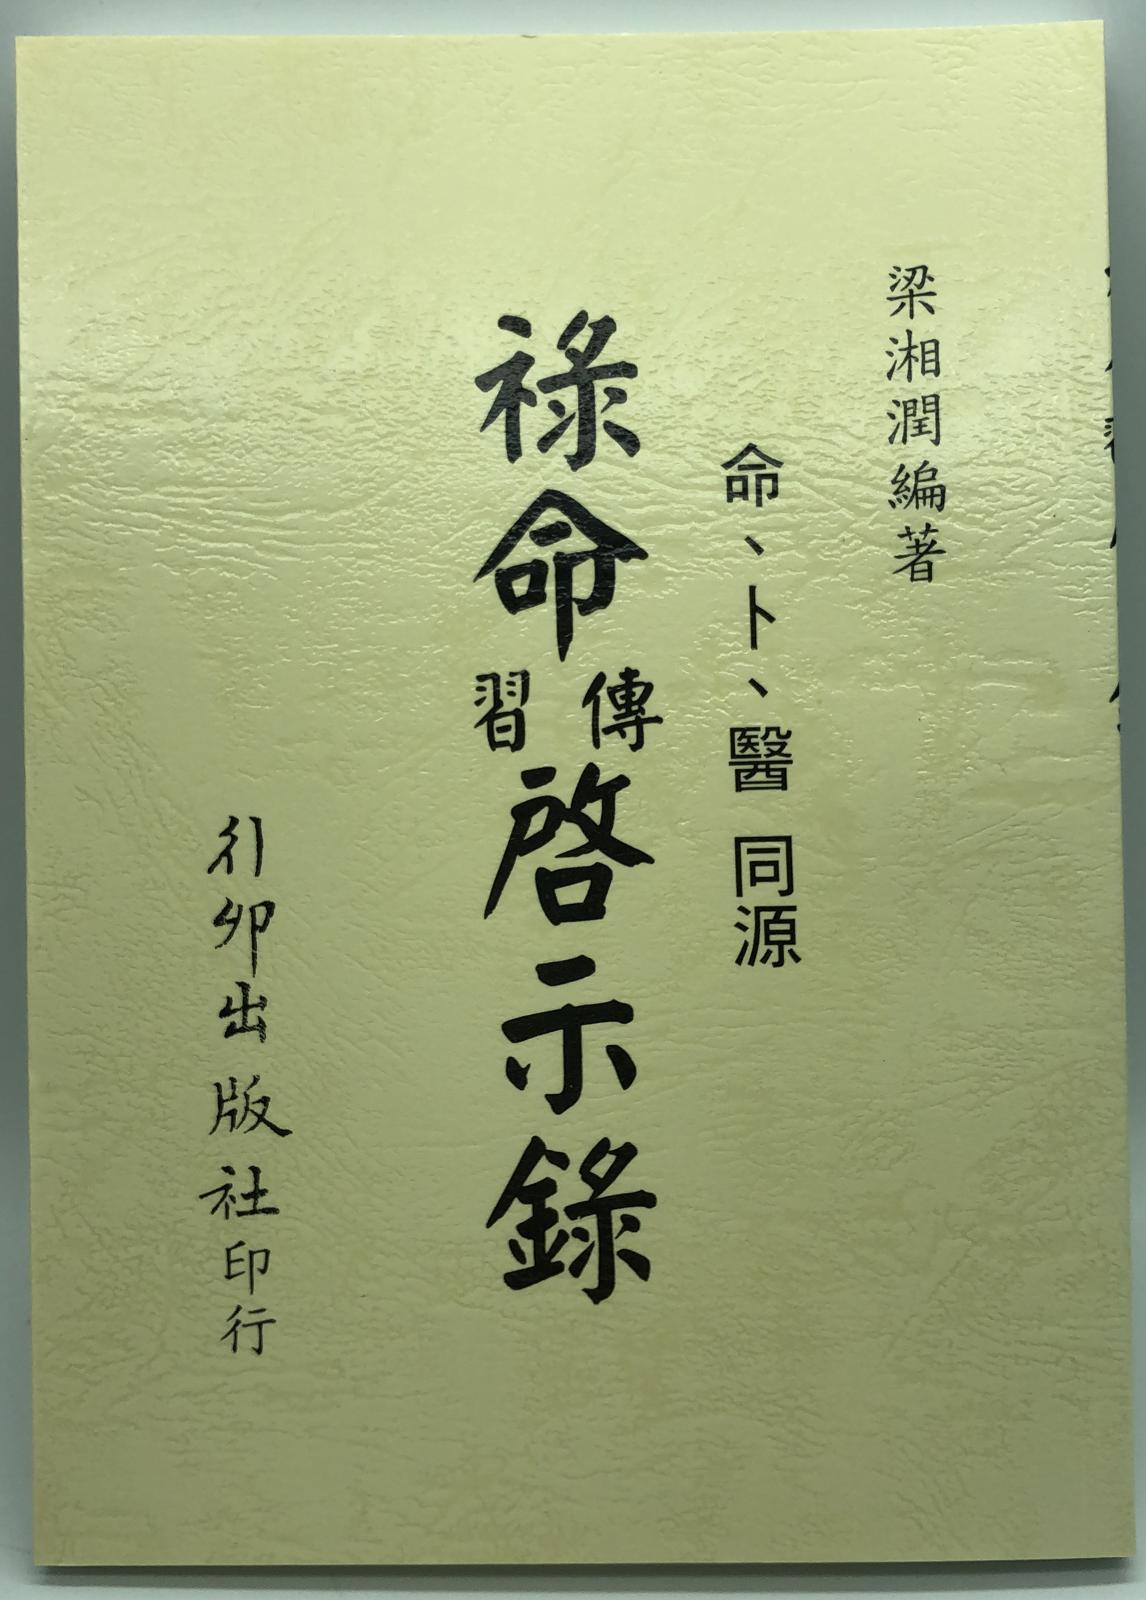 梁湘潤編著
命、卜、醫 同源
祿命
傳習
啓示錄
行卯出版社印行